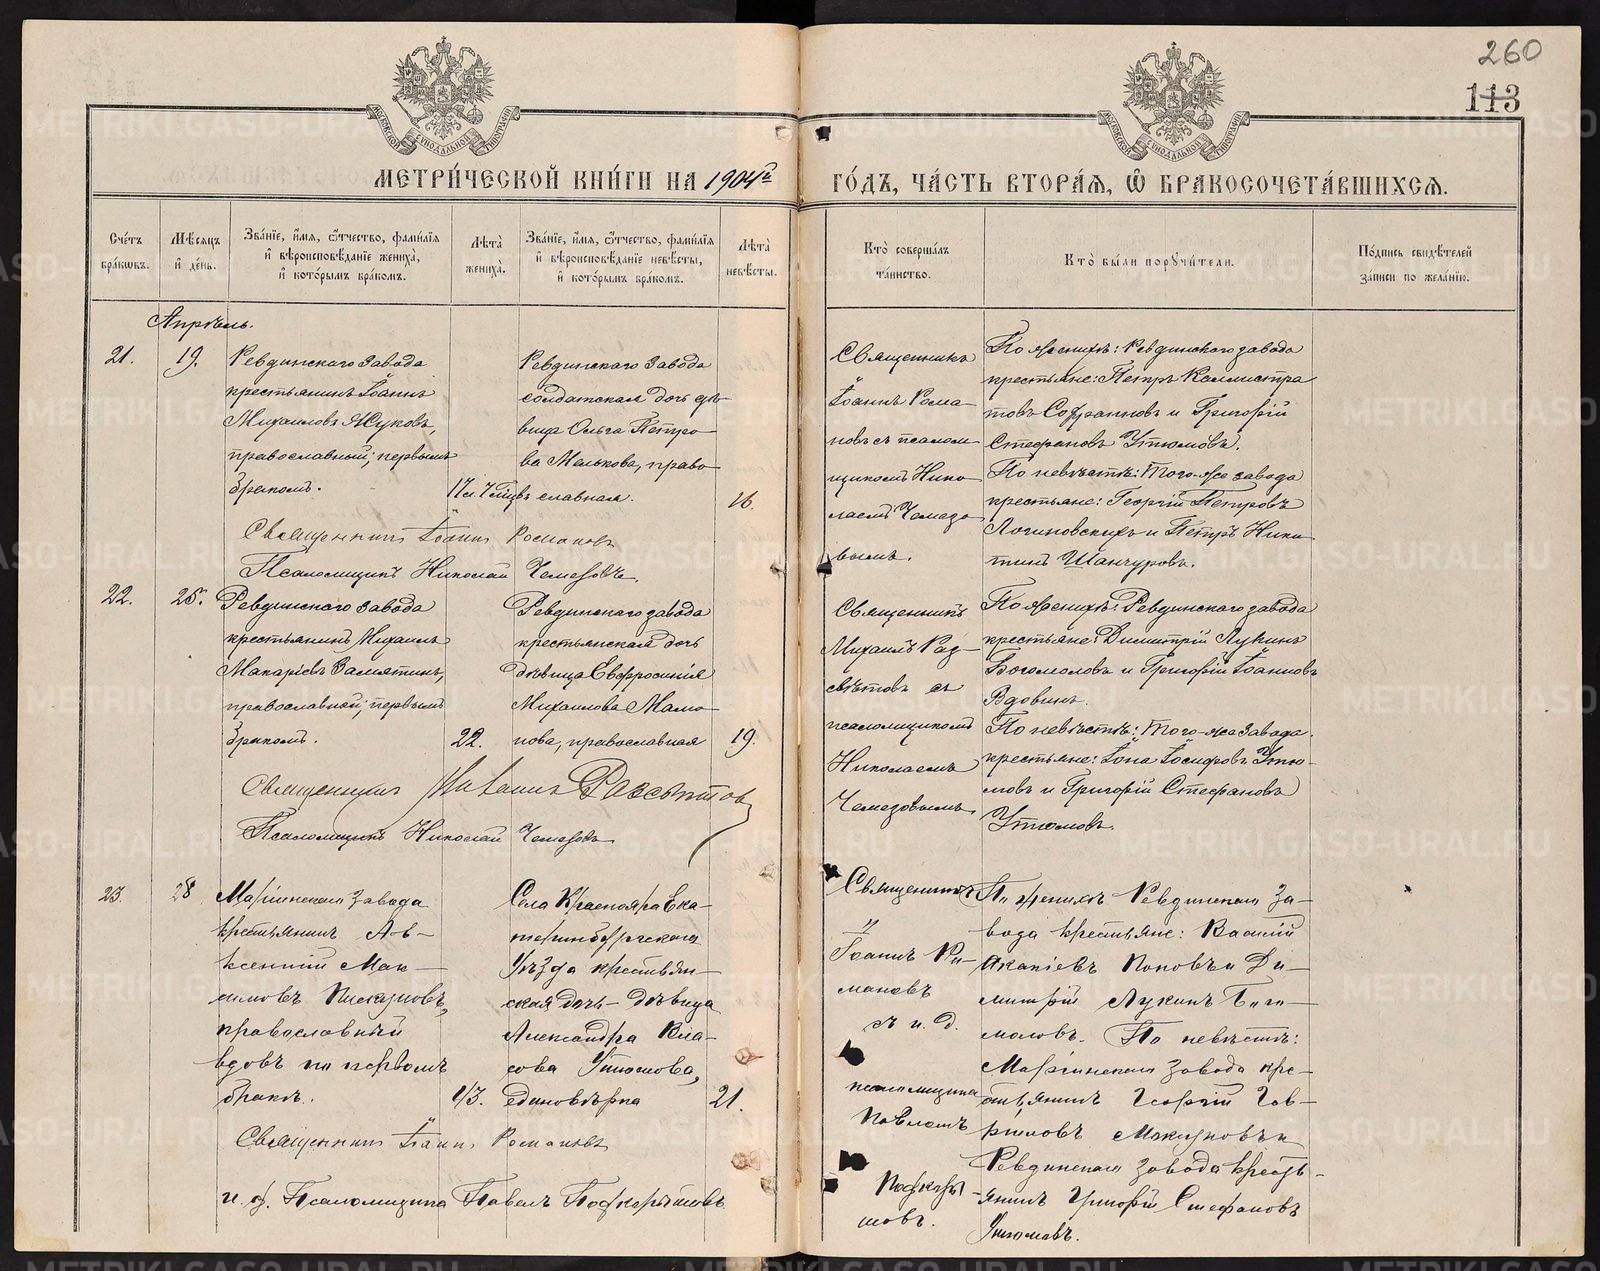 260
113
МЕТРИ́ЧЕСКОЙ КНИ́ГИ НА 1904й ГО́ДЪ, ЧА́СТЬ ВТОРА́Я, Ѿ БРАКОСОЧЕТА́ВШИХСЯ.
Сче́тъ бра́ковъ.
Мѣ́сяцъ и҆ де́нь.
Зва́нїе, и҆́мя, ѻ҆́тчество, фами́лїя
и҆ вѣроисповѣ́данїе жениха̀,
и҆ кото́рымъ бра́комъ.
Лѣта̀ жениха̀.
Зва́нїе, и҆́мя, ѻ҆́тчество, фами́лїя
и҆ вѣроисповѣ́данїе невѣ́сты,
и҆ кото́рымъ бра́комъ.
Лѣта̀ невѣ́сты.
Кто̀ соверша́лъ
та́инство.
Кто̀ бы́ли порꙋчи́тели.
По́дпись свидѣ́телей
за́писи по жела́нїю.
Апрѣль.
21.
19.
Ревдинскаго завода
крестьянинъ Іоаннъ
Михаиловъ Жуковъ,
православный; первымъ
бракомъ.
17л. 7 мѣс.
Ревдинскаго завода
солдатская дочь дѣ-
вица Ольга Петро-
ва Мелькова, право-
славная.
16.
Священникъ
Іоаннъ Рома-
новъ съ псалом-
щикомъ Нико-
лаемъ Чемезо-
вымъ.
По женихѣ: Ревдинскаго завода
крестьяне: Петръ Каллистра-
товъ Софроновъ и Григорій
Стефановъ Утюмовъ.
По невѣстѣ: Того-же завода
крестьяне: Георгій Петровъ
Логиновскихъ и Петръ Ники-
тинъ Шанчуровъ.
Священникъ Іоаннъ Романовъ
Псаломщикъ Николай Чемезовъ.
22.
25.
Ревдинскаго завода
крестьянинъ Михаилъ
Макаріевъ Замятинъ,
православный; первымъ
бракомъ.
22.
Ревдинскаго завода
крестьянская дочь
дѣвица Евфросинія
Михаилова Мамо-
нова, православная
19.
Священникъ
Михаилъ Раз-
свѣтовъ съ
псаломщикомъ
Николаемъ
Чемезовымъ.
По женихѣ: Ревдинскаго завода
крестьяне: Димитрій Лукинъ
Богомоловъ и Григорій Іоанновъ
Вдовинъ.
По невѣстѣ: Того-же завода
крестьяне: Іона Іосифовъ Утю-
мовъ и Григорій Стефановъ
Утюмовъ.
Священникъ Михаилъ Разсвѣтовъ
Псаломщикъ Николай Чемезовъ
23.
28
Маріинскаго завода
крестьянинъ Ав-
ксентій Мак-
симовъ Пискуновъ,
православный
вдовъ по первомъ
бракѣ.
43.
Села Краснояра Ека-
теринбургскаго
Уѣзда крестьян-
ская дочь-дѣвица
Александра Вла-
сова Утюмова,
единовѣрка
21.
Священникъ
Іоаннъ Ро-
мановъ
съ и. д.
псаломщика
Павломъ
По женихѣ Ревдинскаго За-
вода крестьяне: Василій
Акакіевъ Поповъ и Ди-
митрій Лукинъ Бого-
моловъ. По невѣстѣ:
Маріинскаго завода кре-
стьянинъ Георгій Гав-
риловъ
Ревдинскаго завода кресть-
янинъ Григорій Стефановъ
Утюмовъ.
Священникъ Іоаннъ Романовъ
и. д. Псаломщика Павелъ
METRIKI.GASO-URAL.RU